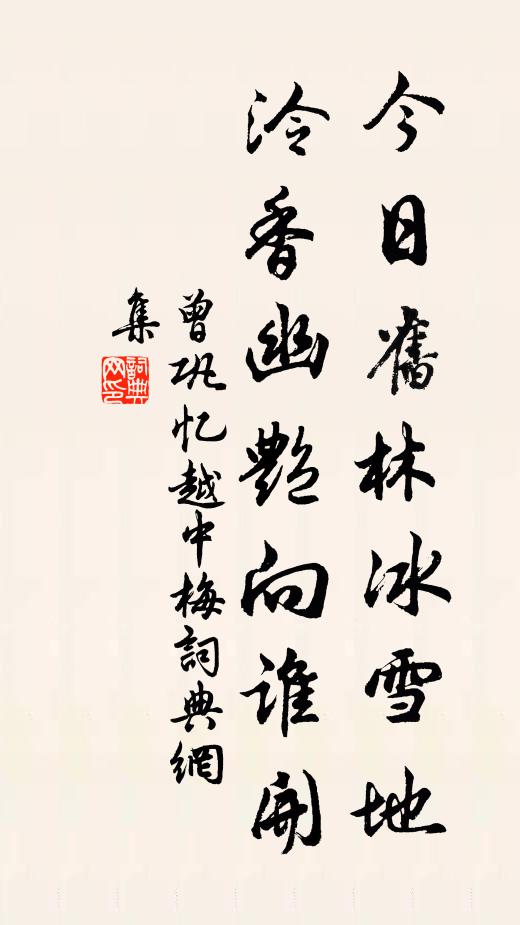 今日舊林冰雪地
泠香幽艷向誰開
曾巩忆越中梅詞典網
集
詞典网印